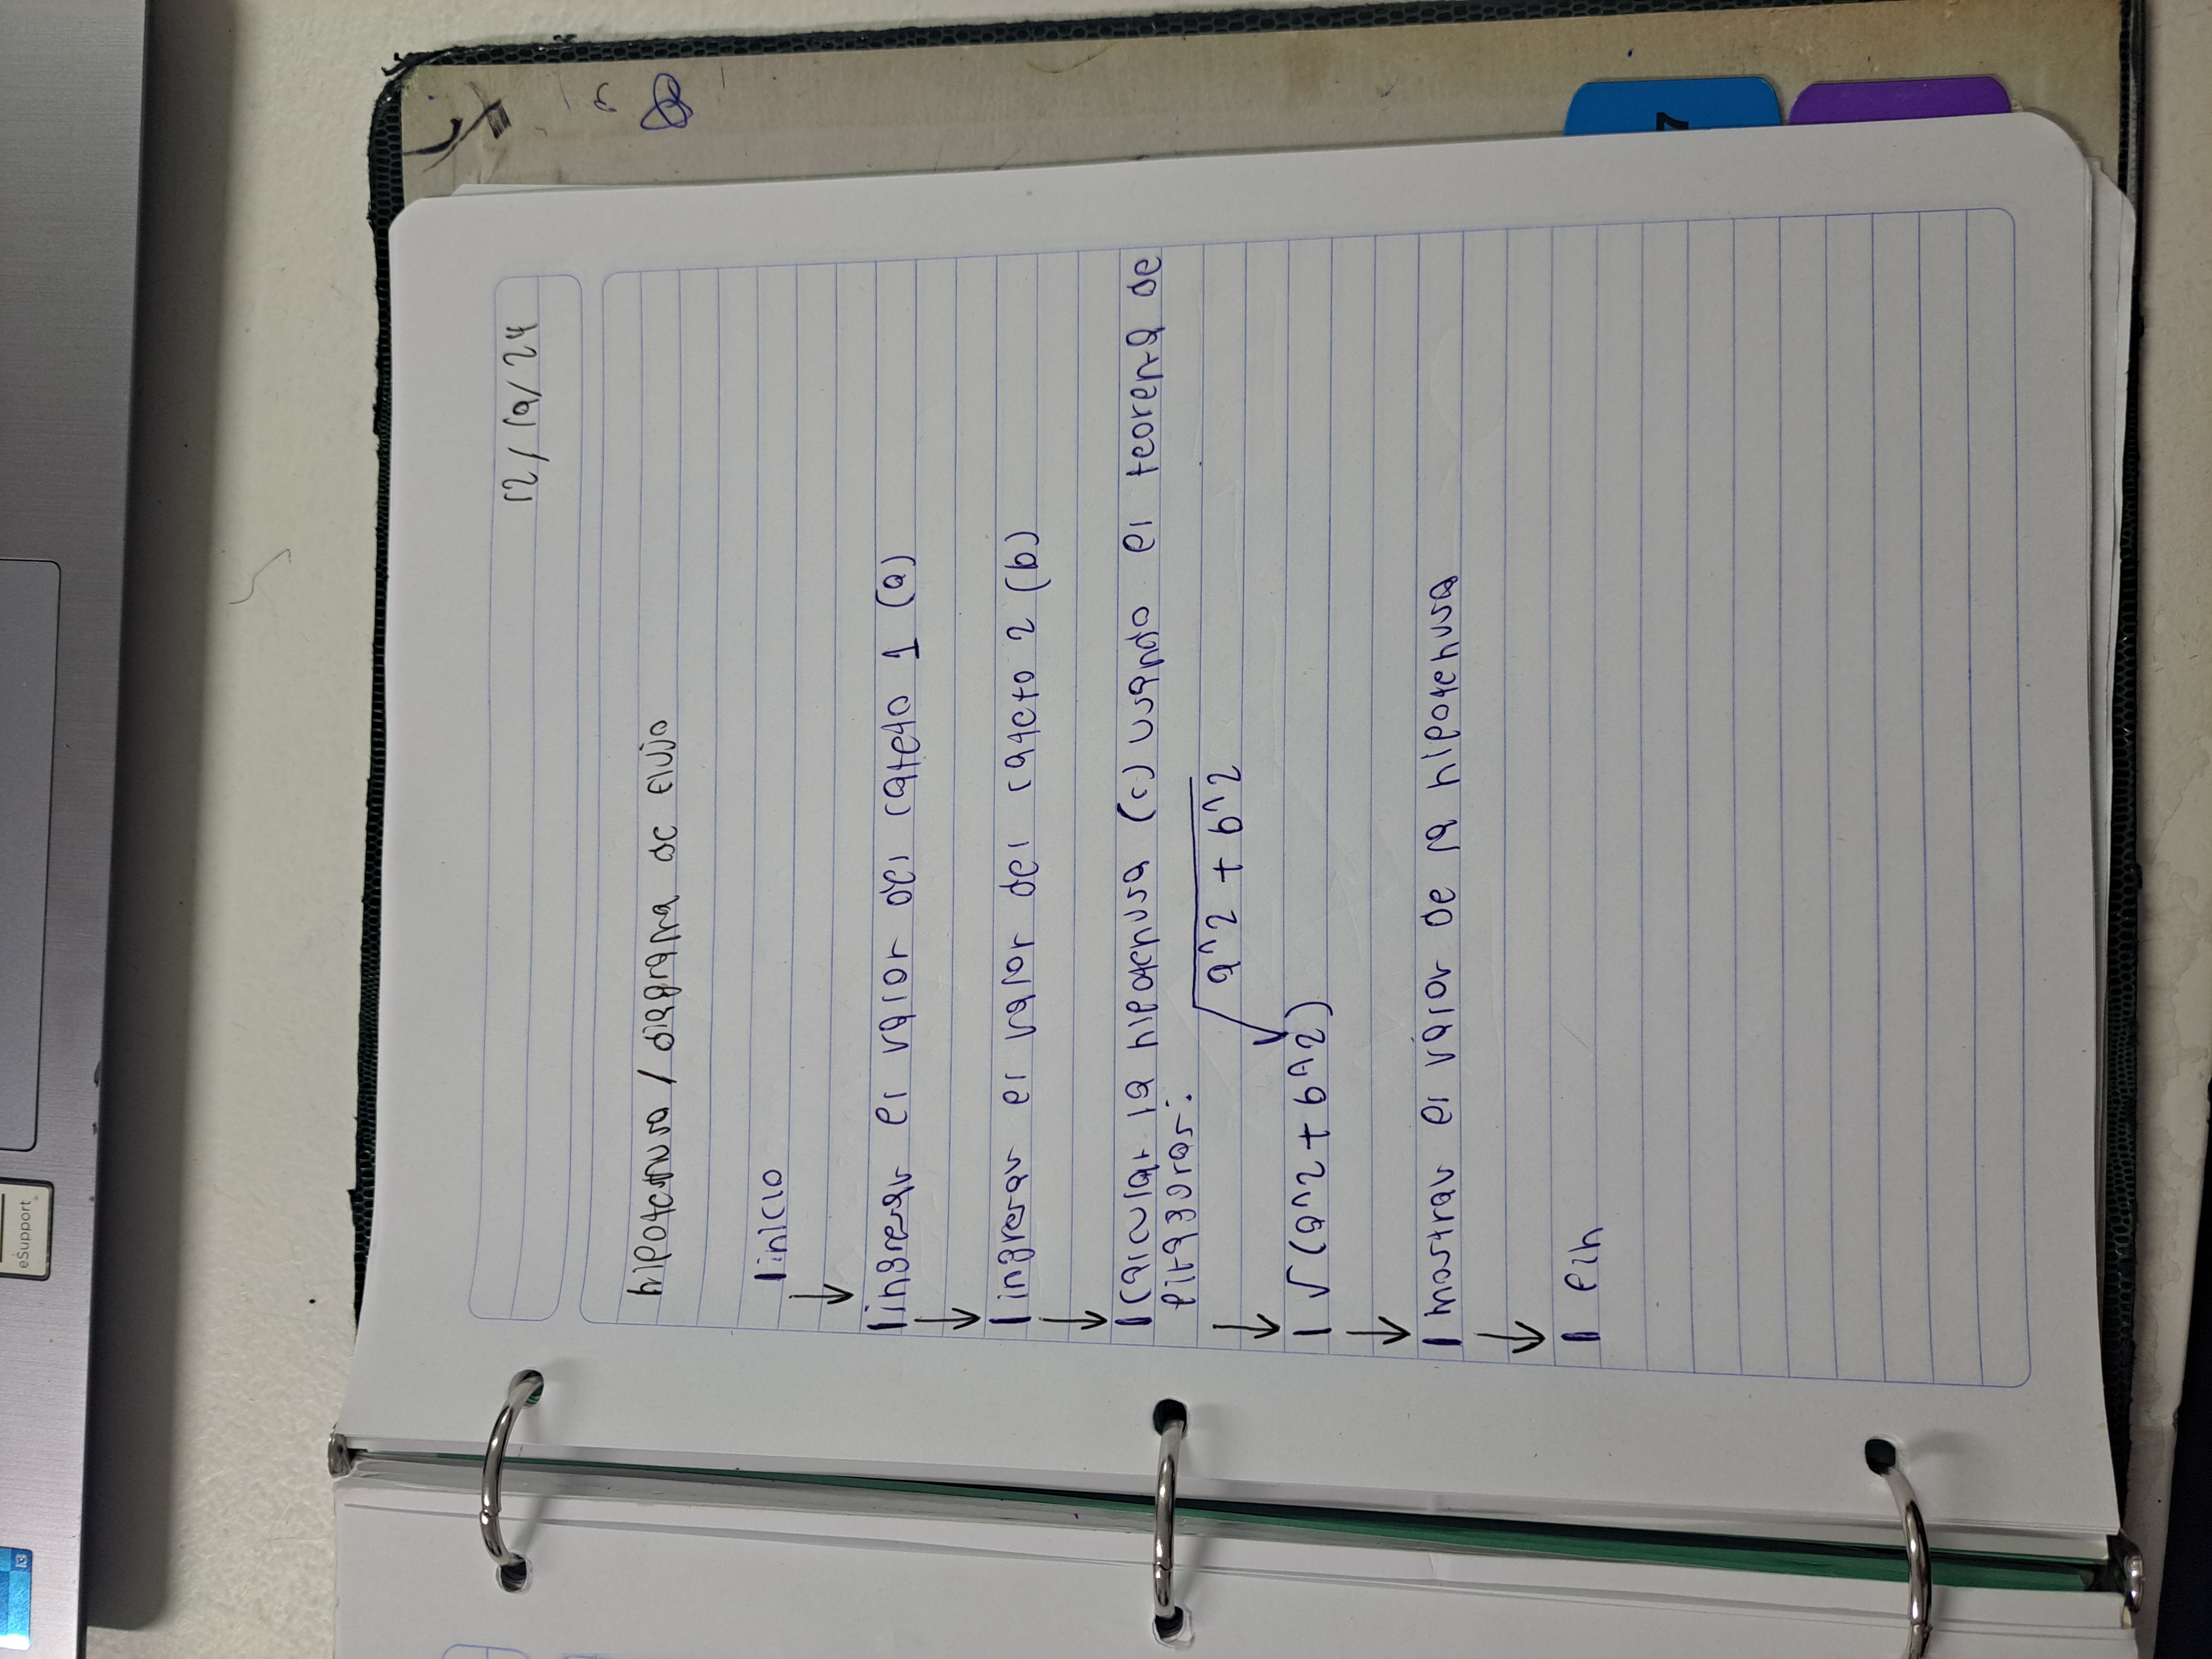 12/19/24
hipotenusa / diagrama de flujo
inicio
ingresar el valor del cateto 1 (a)
ingresar el valor del cateto 2 (b)
calcular la hipotenusa (c) usando el teorema de
pitagoras:
√a^2 + b^2
√(a^2 + b^2)
mostrar el valor de la hipotenusa
fin
eSupport